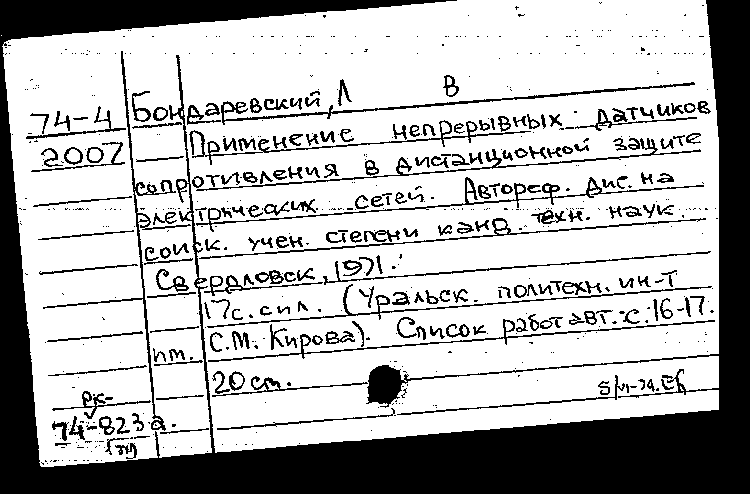 74-4 Бондаревский, Л В
2007 Применение непрерывных датчиков
сопротивления в дистанционной защите
электрических сетей. Автореф. дис. на
соиск. учен. степени канд. техн. наук.
Свердловск, 1971.
17 с. с ил. (Уральск. политехн. ин-т
им. С.М. Кирова). Список работ авт.: с. 16-17.
20 cm.
74-823 а.